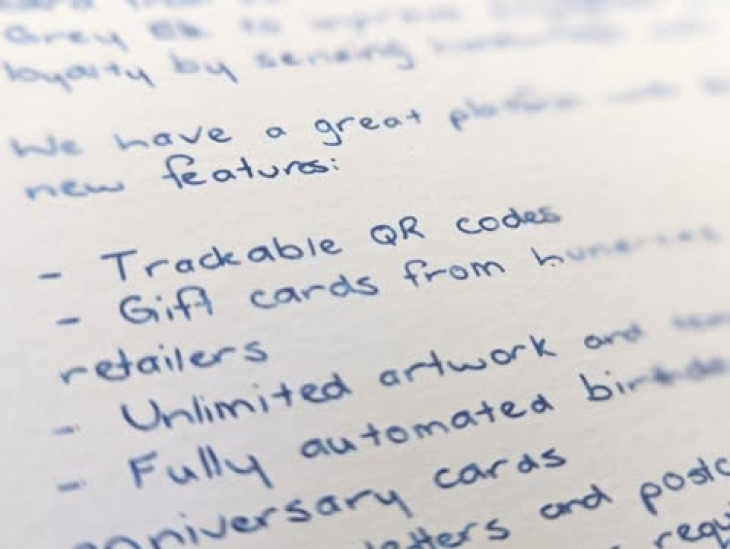 loyalty by sending
We have a great platform with
new features:
- Trackable QR codes
- Gift cards from
retailers
- Unlimited artwork and
- Fully automated
anniversary cards
letters and